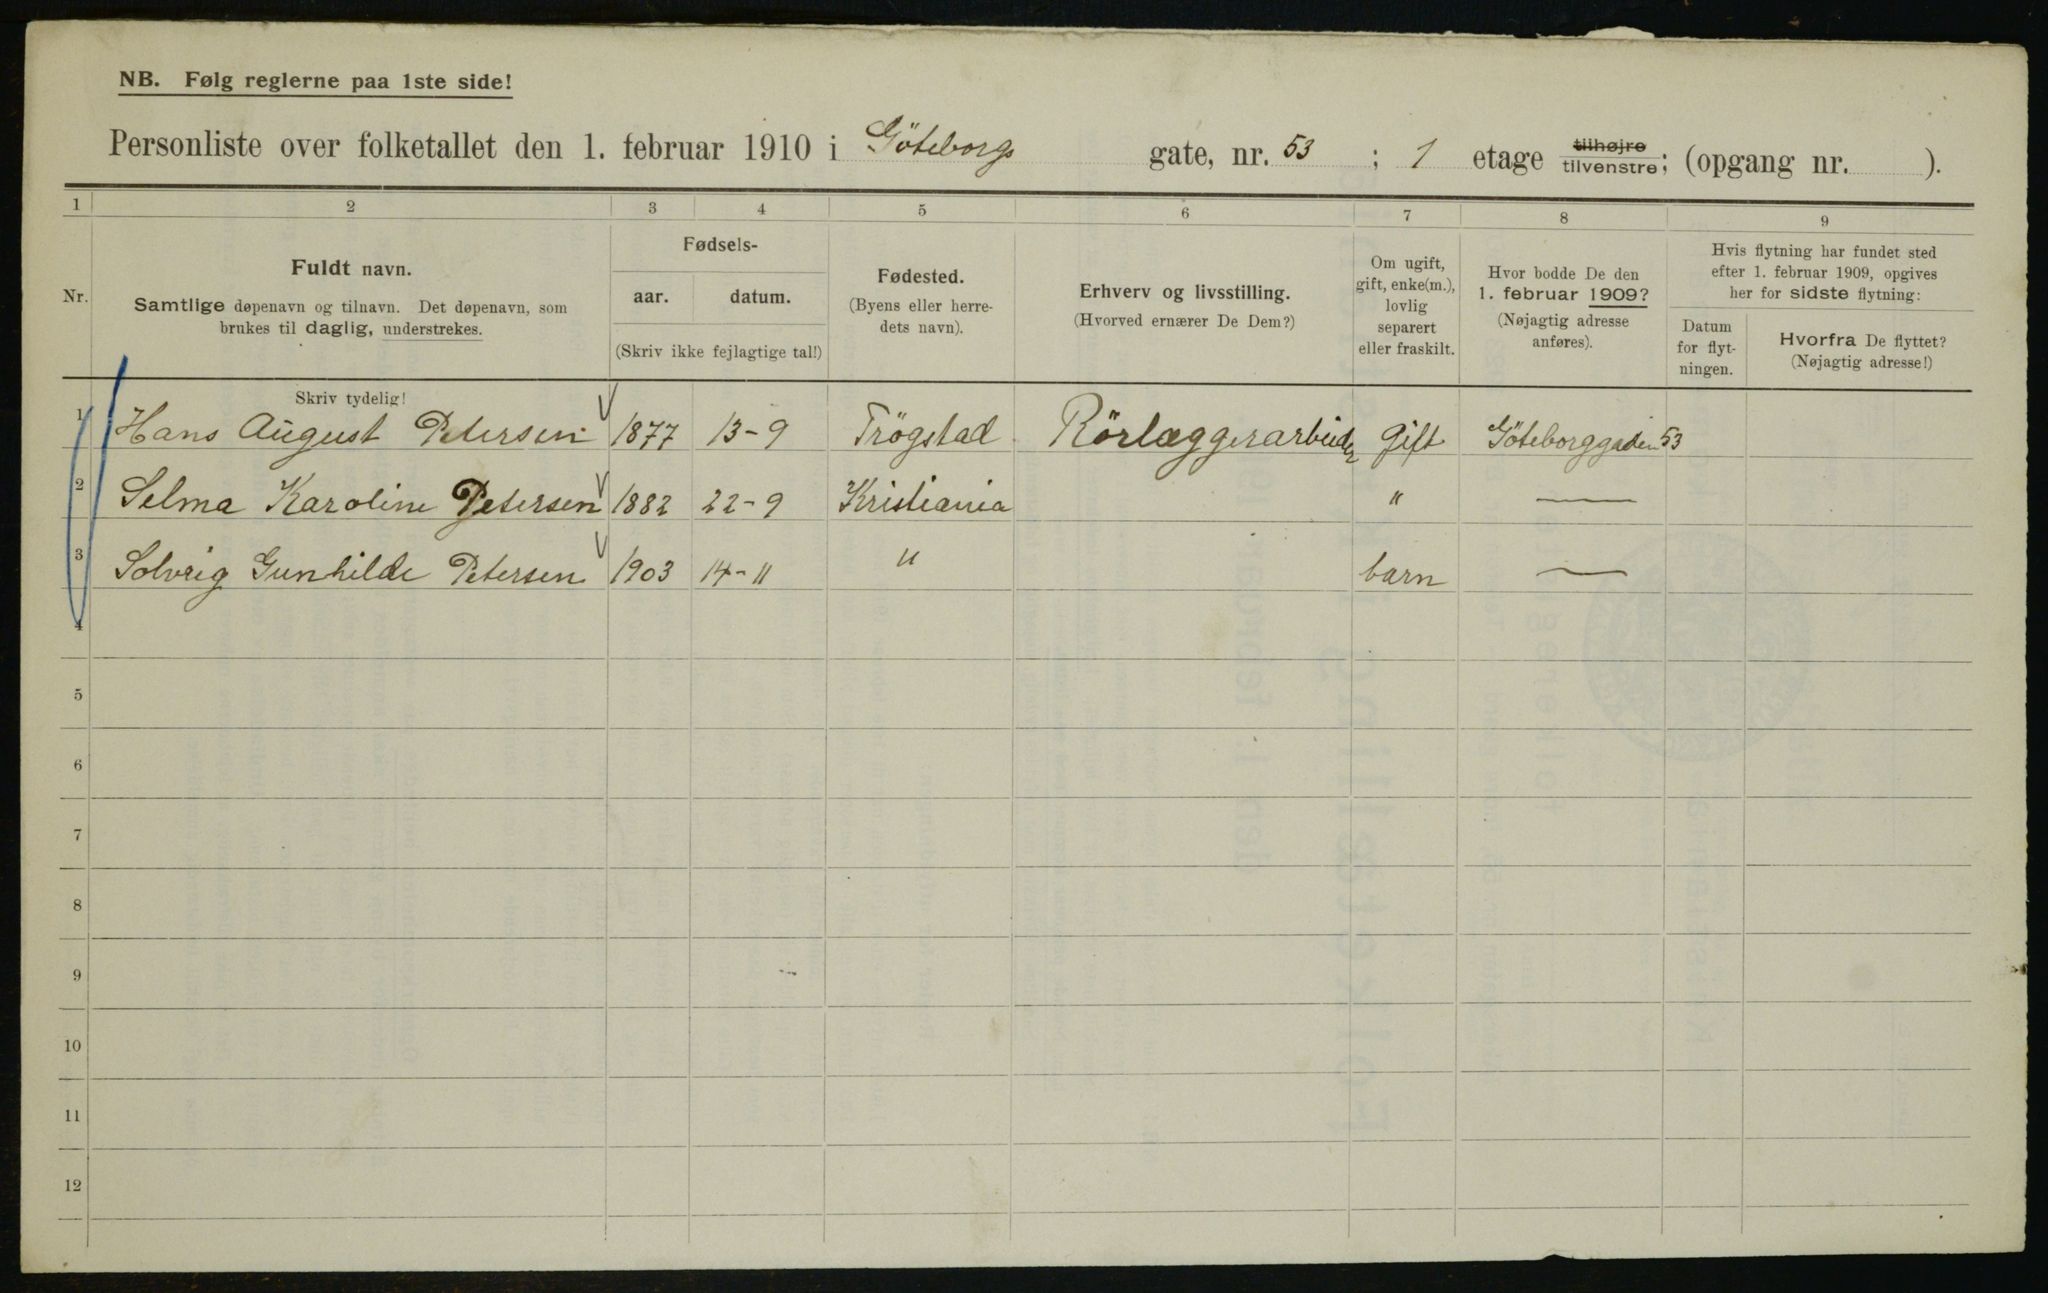 NB. Følg reglerne paa 1ste side!
Personliste over folketallet den 1. februar 1910 i Göteborgs gate, nr. 53 ; 1 etage tilhøjre tilvenstre; (opgang nr. ).
1 2 3 4 5 6 7 8 9
Nr.
Fuldt navn.
Samtlige døpenavn og tilnavn. Det døpenavn, som
brukes til daglig, understrekes.
Fødsels-
aar. datum.
(Skriv ikke fejlagtige tal!)
Fødested.
(Byens eller herre-
dets navn).
Erhverv og livsstilling.
(Hvorved ernærer De Dem?)
Om ugift,
gift, enke(m.),
lovlig
separert
eller fraskilt.
Hvor bodde De den
1. februar 1909?
(Nøjagtig adresse
anføres).
Hvis flytning har fundet sted
efter 1. februar 1909, opgives
her for sidste flytning:
Datum
for flyt-
ningen.
Hvorfra De flyttet?
(Nøjagtig adresse!)
Skriv tydelig!
1 Hans August Petersen 1877 13-9 Trögstad Rörlæggerarbeider gift Göteborggaden 53
2 Selma Karoline Petersen 1882 22-9 Kristiania " —
3 Solveig Gunhilde Petersen 1903 14-11 " barn —
4
5
6
7
8
9
10
11
12